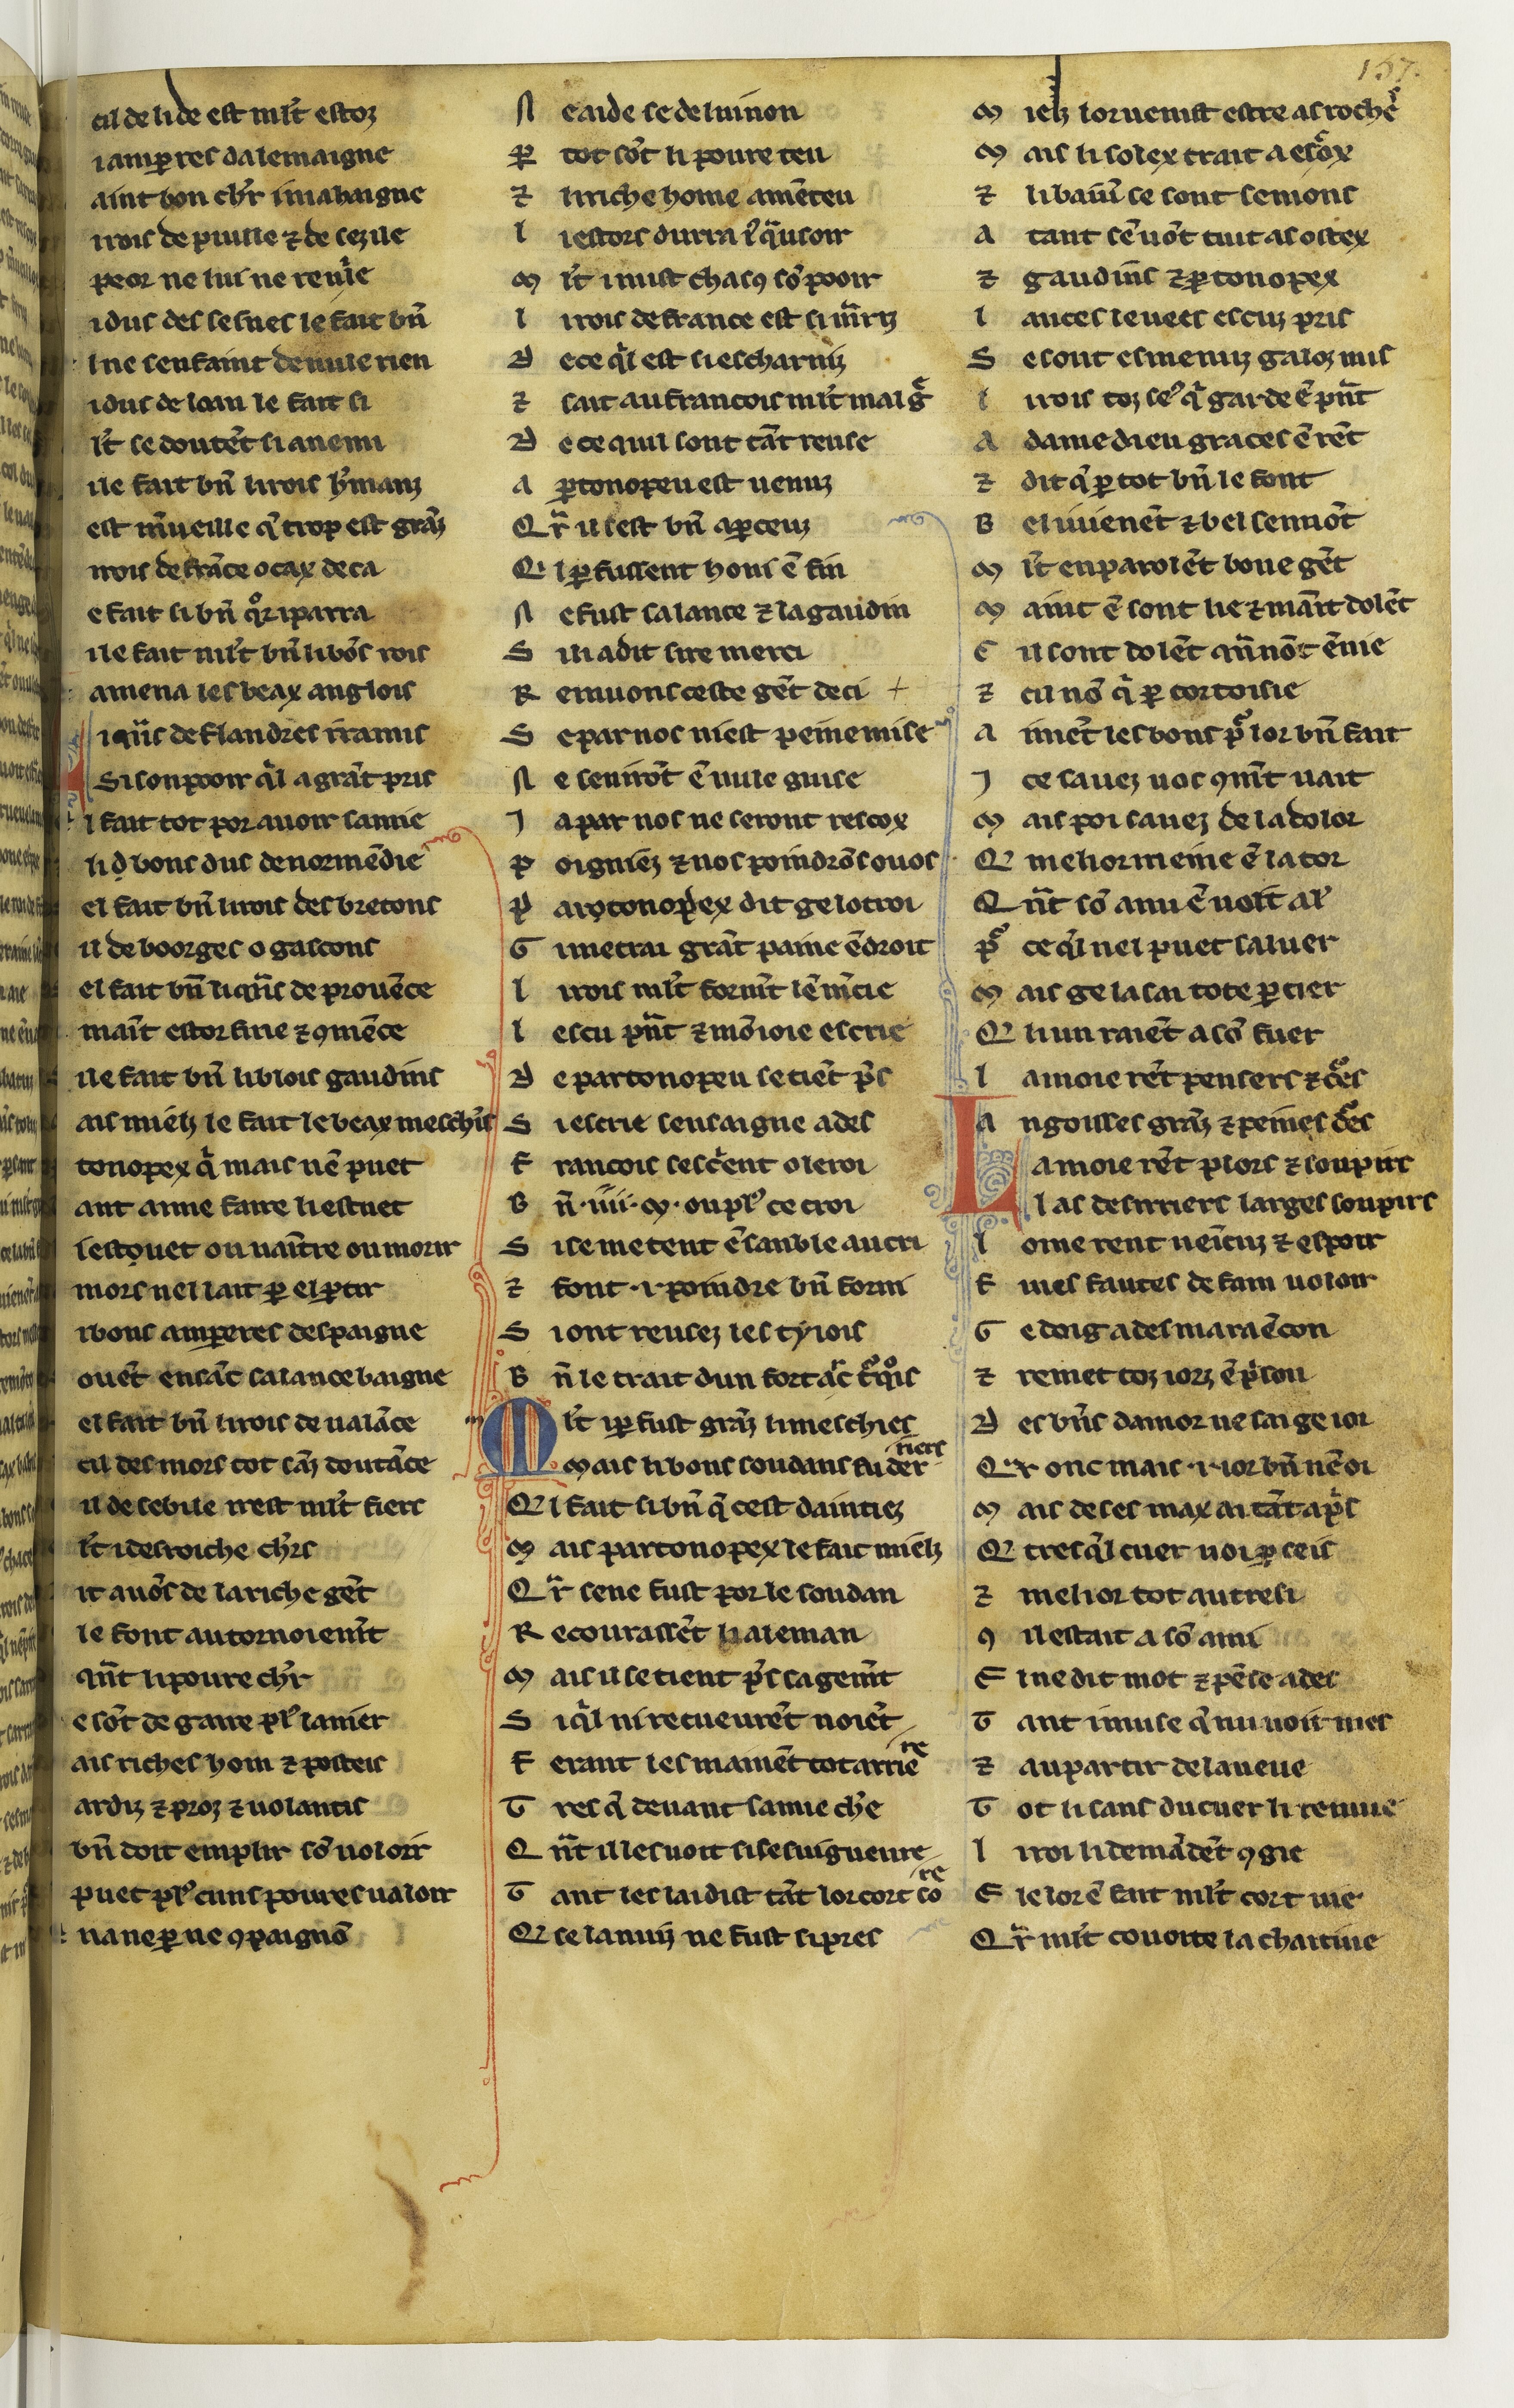 157.
cil de lide est ml't estoz
i amꝑres dalemaigne
aint bon chr̃ i mahaigne
i rois de puille ⁊ de sezile
peor ne lui ne reuie
i dus des sesnes le fait bñ
l ne sen faint de nule rien
i dus de loain le fait si
l't se doutẽt si anemi
i le fait bñ li rois h'manz
est m̃ueille q̃ trop est grãz
i rois de frãce o cax deca
e fait si bñ qͦr i parra
i le fait ml't bñ li bõs rois
amena les beax anglois
i q̃ns de flandres tramis
Si son pooir q̃l a grãt pris
l fait tot por auoir samie
li bons dus de normẽdie
el fait bñ li rois des bretons
il de boorges o gascons
el fait bñ li q̃ns de prouẽce
maĩt estor fine ⁊ ꝯmẽce
i le fait bñ li blois gaudins
ais mielz le fait le beax meschĩs
tonopex q̃ mais nẽ puet
ant arme faire li estuet
lestouet ou uaĩtre ou morir
mors nel lait ꝑ el ꝑtir
i bons amperes despaigne
ouẽt en sãc sa lance baigne
el fait bñ li rois de ualãce
cil des mors tot sãz doutãce
il de sebile rest ml't fiers
l't i desroiche chr̃s
it auõs de la riche gẽt
le font au tornoiemt̃
q̃nt li poure chr̃
e sõt de gaire pl' lanier
ais riches hom ⁊ posteis
ardiz ⁊ proz ⁊ uolantis
bñ doit emplir sõ uoloir
puet pl' cuns poures ualoir
na ne ꝑ ne ꝯpaignõ
N e aide se de lui non
P tot sõt li poure teu
⁊ li riche home amẽteu
l i estors durra i' q̃usoir
M l't i mist chascꝰ sõ pooir
l i rois de france est si m̃riz
D e ce q̃l est si escharniz
⁊ sait au francois ml't mal g̃
D e ce quil sont tãt reuse
A ꝑtonopeu est uenuz
Q r̃ il est bñ aꝑceuz
Q l ꝑ fussent hons ẽ fin
N e fust sa lance ⁊ la gaudin
S i li a dit sire merci
R emuons ceste gẽt deci +
S e par nos niest peine mise
N e sen irõt ẽ nule guise
J a par nos ne seront rescox
P oigniez ⁊ nos poindrõs o uos
P artonopex dit ge lotroi
G i metrai grãt paine ẽdroit
l i rois ml't formt̃ lẽ m̃cie
l escu pñt ⁊ mõioie escrie
D e partonopeu se tiẽt p̃s
S i escrie sensaigne ades
F rancois sescrient o le roi
B ñ .iiii. M. ou pl' ce croi
S i se metent ẽsanble au cri
⁊ font .i. poindre bñ forni
S i ont reusez les tyrois
B ñ le trait dun fort ac
M l't i ꝑ fust grãz li meschies
M ais li bons soudans fu der
riers
Q l fait si bñ q̃ cest daintiez
M ais partonopex le fait mielz
Q r̃ se ne fust por le soudan
R ecourassẽt li aleman
M ais il se tient p̃s sa gemt̃
S i q̃l ni recueurẽt noiẽt
F erant les mainẽt tot arrie
re
T res q̃ deuant samie ch'e
Q ñt il les uoit si sesuigueure
T ant les laidist tãt lor cort so
re
Q se lanuiz ne fust si pres
M ielz lor uenist estre as rochẽs
M ais li solex trait a escõx
⁊ li baiuñ se sont semons
A tant sẽ uõt tuit as ostex
⁊ gaudins ⁊ ꝑtonopex
l ances leuees escuz pris
S e sont es menuz galoz mis
l i rois toz se' q̃ garde ẽ pñt
A damedieu graces ẽ rẽt
⁊ dit q̃ ꝑ tot bñ le font
B el i uienẽt ⁊ bel sen uõt
M l't en parolẽt bone gẽt
M aint ẽ sont lie ⁊ maĩt dolẽt
C il sont dolẽt q̃ñ nõt ẽuie
⁊ cil nõ q̃ ꝑ cortoisie
A imẽt les bons p' lor bñ fait
J ce sauez uos ꝯmt̃ uait
M ais poi sauez de la dolor
Q melior meine ẽ la tor
Q ñt sõ ami ẽ uoit al'
P' ce q̃l nel puet saluer
M ais ge la sai tote ꝑ cier
Q li un raiẽt a sõ fuer
l amoie rẽt pensers ⁊ d'es
A ngoisses grãz ⁊ peines d'es
L amoie rẽt plors ⁊ soupirs
l as desirriers larges soupirs
l ome rent ueĩcuz ⁊ espoir
F ines fautes de fain uoloir
G e doig ades ma raẽcon
⁊ remet toz iorz ẽ p'son
D es bñs damor ne sai ge ior
Q r onc mais .i. ior bñ nẽ oi
M ais de ses max ai tãt ap̃s
Q tres q̃l cuer uoi ꝑ ceis
⁊ melior tot autresi
ꝯ il estait a sõ ami
E l ne dit mot ⁊ pẽse ades
T ant i muse q̃ nu uoit mes
⁊ au partir de la ueue
T ot li sans du cuer li remue
l i roi li demãdẽt ꝯgie
E le lor ẽ fait ml't cort uie
Q r̃ ml't couoite la chartiue